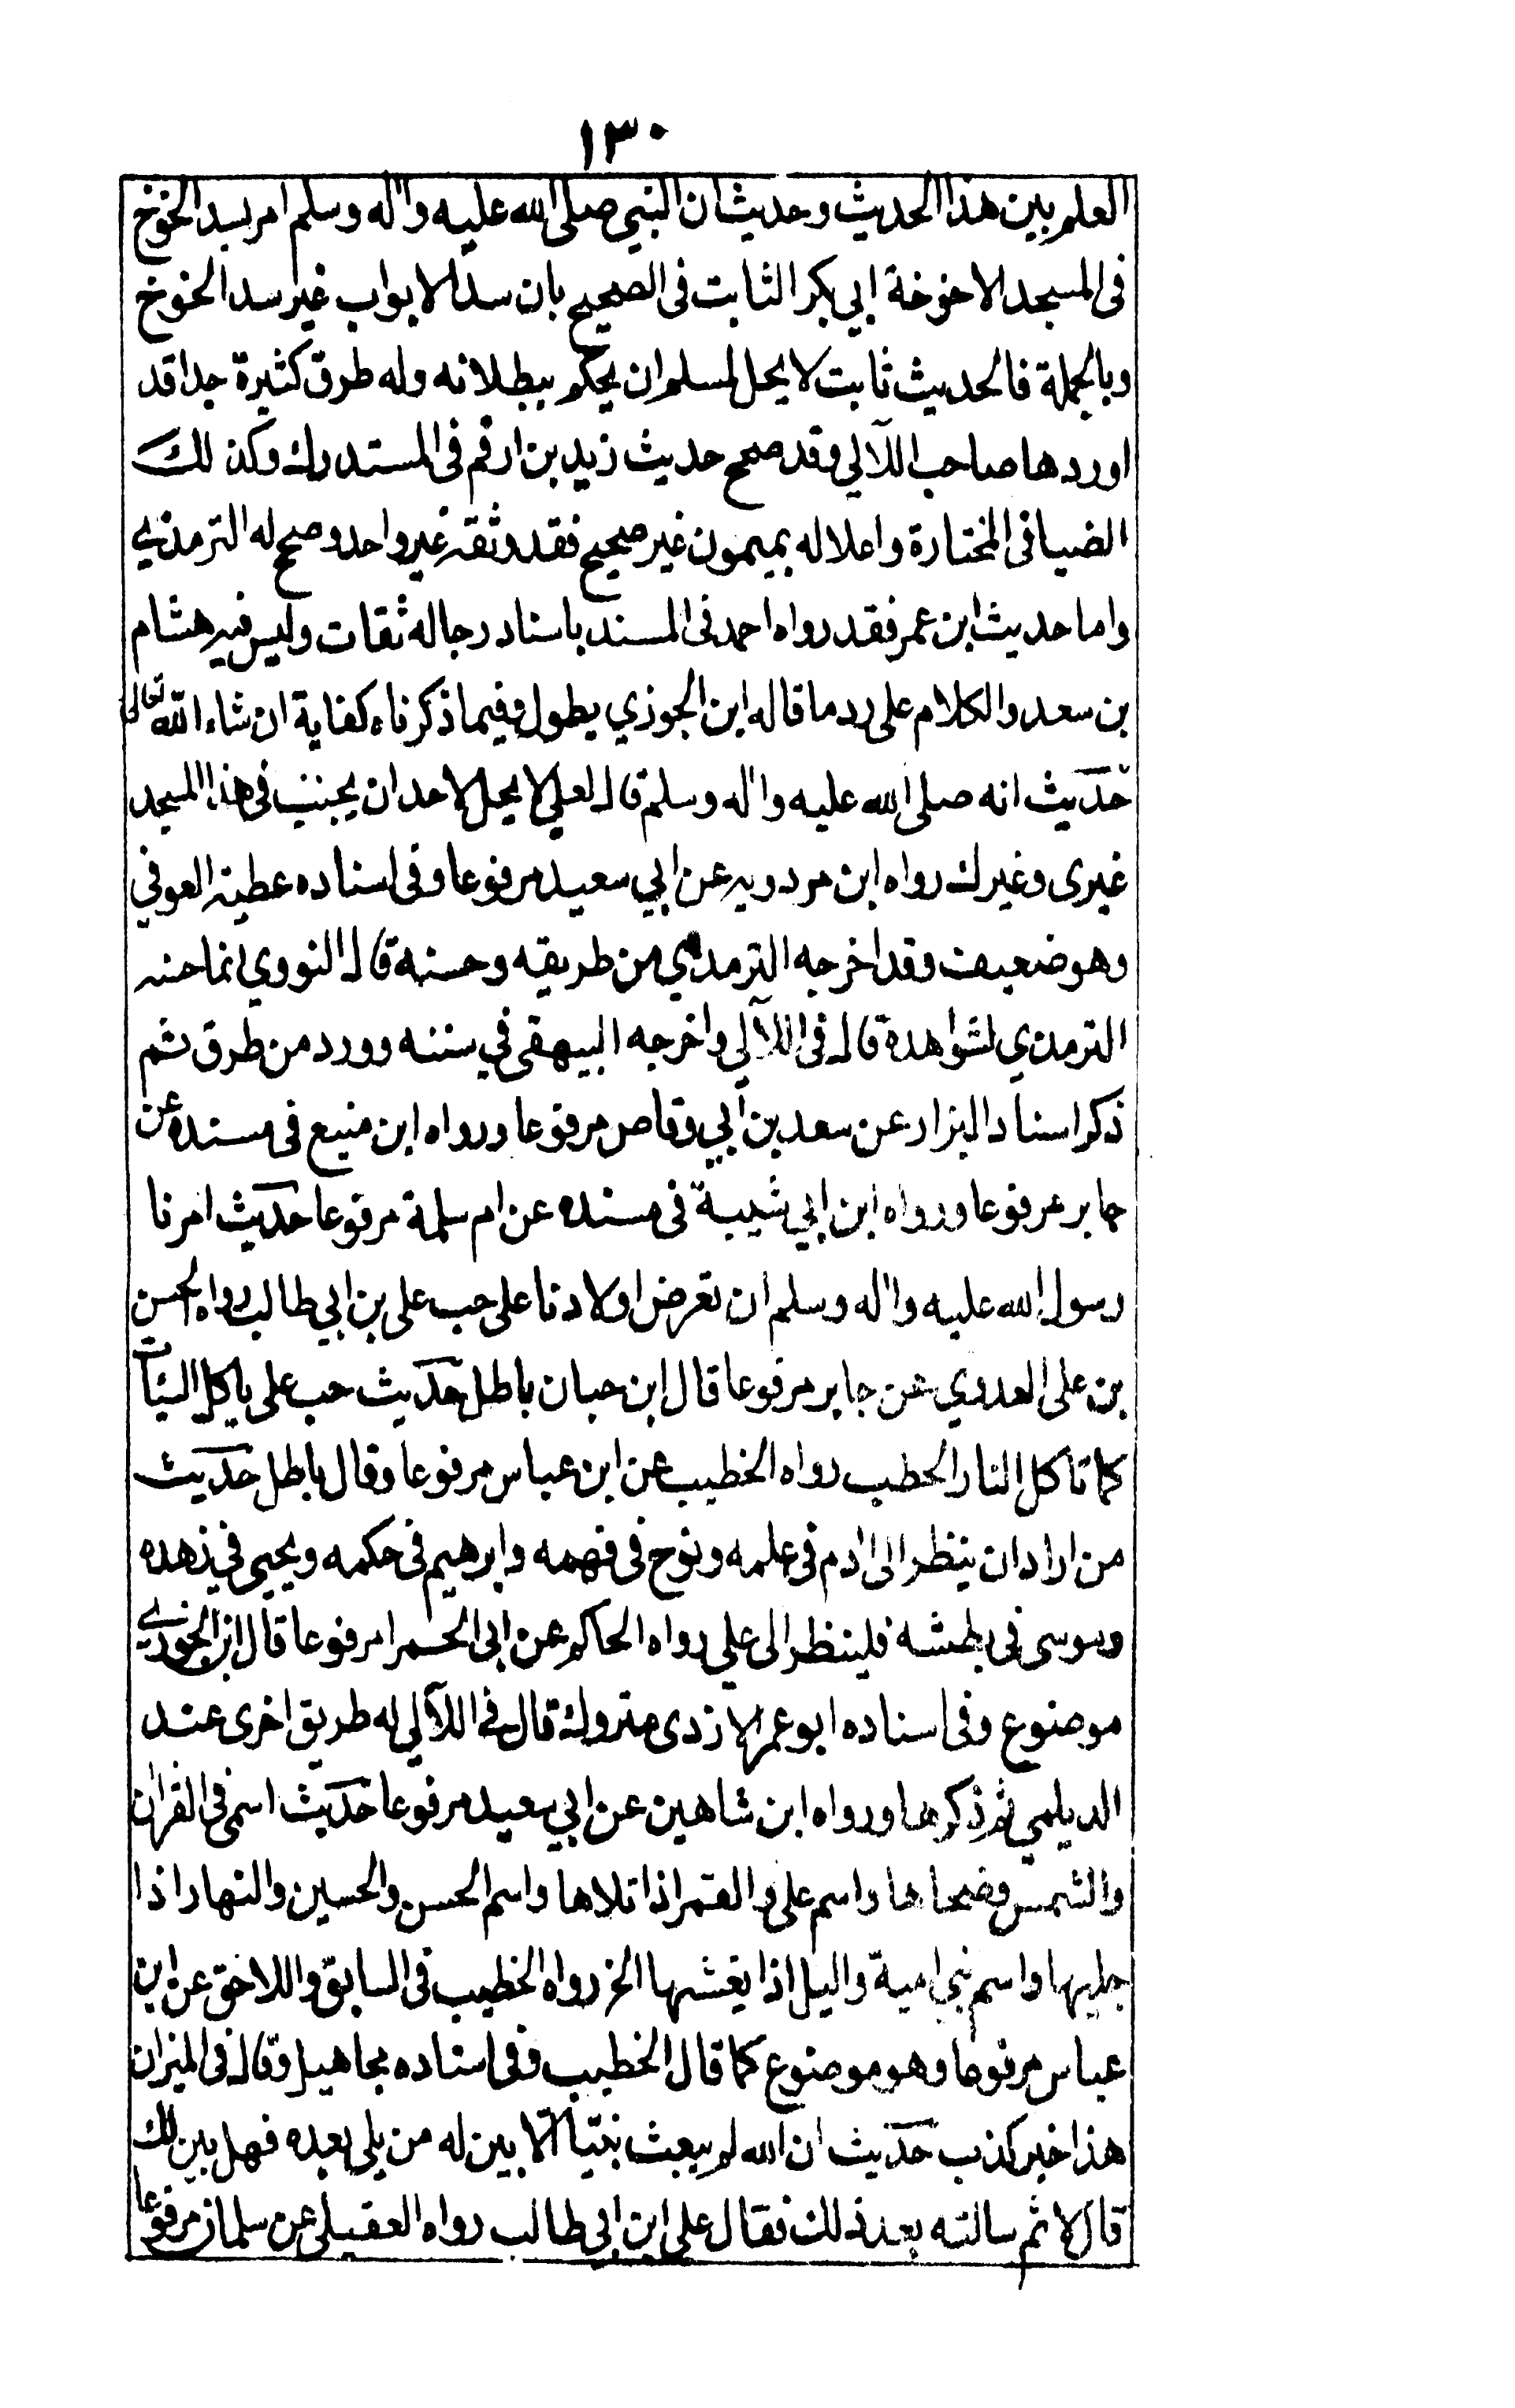 ١٣٠
العلم بين هذا الحديث وحديث ان النبي صلى الله عليه واله وسلم امر بسد الخوخ
فى المسجد الا خوخة ابي بكر الثابت فى الصحيح بان سد الابواب غير سد الخوخ
وبالجملة فالحديث ثابت لا يحل لمسلم ان يحكم ببطلانه وله طرق كثيرة جدا قد
اوردها صاحب اللآلي وقد صحح حديث زيد بن ارقم فى المستدرك وكذلك
الضيا فى المختارة واعلاله بميمون غير صحيح فقد وثقه غير واحد وصحح له الترمذي
واما حديث ابن عمر فقد رواه احمد فى المسند باسناد رجاله ثقات وليس فيه هشام
بن سعد والكلام على رد ما قاله ابن الجوزي يطول وفيما ذكرناه كفاية ان شاء الله تعالى
حديث انه صلى الله عليه واله وسلم قال لعلي لا يحل لاحد ان يجنب فى هذا المسجد
غيرى وغيرك رواه ابن مردويه عن ابي سعيد مرفوعا وفى اسناده عطية العوفي
وهو ضعيف وقد اخرجه الترمذي من طريقه وحسنه قال النووي انما حسنه
الترمذي لشواهده قال فى اللآلي واخرجه البيهقى في سننه وورد من طرق ثم
ذكر اسناد البزار عن سعد بن ابي وقاص مرفوعا ورواه ابن منيع فى مسنده عن
جابر مرفوعا ورواه ابن ابي شيبة فى مسنده عن ام سلمة مرفوعا حديث امرنا
رسول الله عليه واله وسلم ان نعرض اولادنا على حب على بن ابي طالب رواه الحسن
بن على العدوي عن جابر مرفوعا قال ابن حبان باطل حديث حب على ياكل السيئات
كما تاكل النار الحطب رواه الخطيب عن ابن عباس مرفوعا وقال باطل حديث
من اراد ان ينظر الى ادم فى علمه ونوح فى فهمه وابرهيم فى حكمه ويحيى في زهده
وموسى فى بطشه فلينظر الى علي رواه الحاكم عن ابى الحمرا مرفوعا قال ابن الجوزي
موضوع وفى اسناده ابو عمر الازدى متروك قال فى اللآلي له طريق اخرى عند
الديلمي ثم ذكرها ورواه ابن شاهين عن ابي سعيد مرفوعا حديث اسمى فى القران
والشمس وضحاها واسم على والقمر اذا تلاها واسم الحسن والحسين والنهار اذا
جليها واسم بني امية واليل اذا يغشيها الخ رواه الخطيب فى السابق واللاحق عن ابن
عباس مرفوعا وهو موضوع كما قال الخطيب وفى اسناده مجاهيل وقال فى الميزان
هذا خبر كذب حديث ان الله لم يبعث نبيّا الّا بين له من يلى بعده فهل بين لك
قال لا ثم سالته بعد ذلك فقال على ابن ابي طالب رواه العقيلى عن سلمان مرفوعا